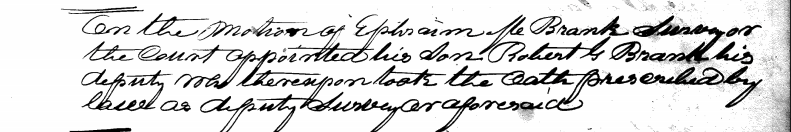 On the Motion of Ephraim M Brank Surveyor
the Court appointed his Son Robert G Brank his
deputy who thereupon took the Oath prescribed by
law as deputy Surveyor aforesaid